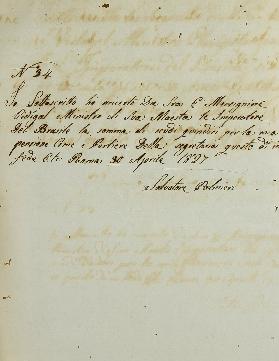 No 34.
Io Sottoscritto ho ricevuto Da Sua E Monsignore
Vidigal Ministro di Sua Maestà le Imperatore
Del Brasile la somma di scudi quindici per la mia
pensione Come Portiere Della segretaria questo di in
fede etc Roma 30 Aprile 1827
Salvatore Palmieri